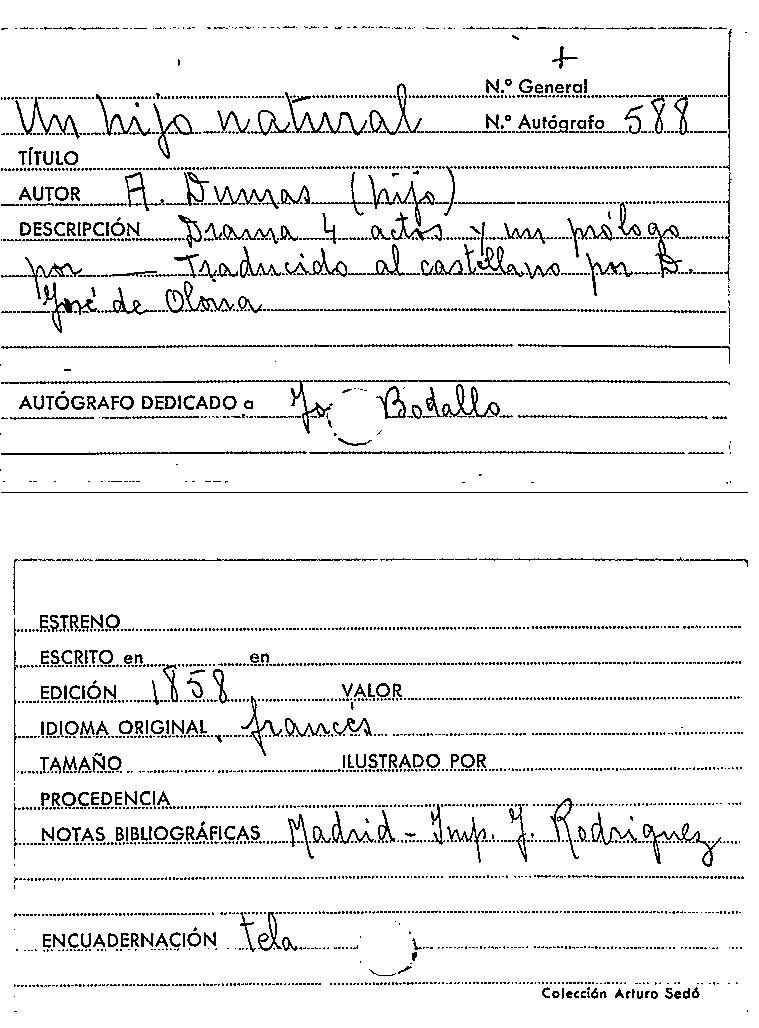 +
N.º General
Un hijo natural N.º Autógrafo 588
TÍTULO
AUTOR A. Dumas (hijo)
DESCRIPCIÓN Drama 4 actos y un prólogo
por — Traducido al castellano por D.
José de Olona
AUTÓGRAFO DEDICADO a Bodallo
ESTRENO
ESCRITO en en
EDICIÓN 1858 VALOR
IDIOMA ORIGINAL francés
TAMAÑO ILUSTRADO POR
PROCEDENCIA
NOTAS BIBLIOGRÁFICAS Madrid - Imp. J. Rodriguez
ENCUADERNACIÓN tela
Colección Arturo Sedó